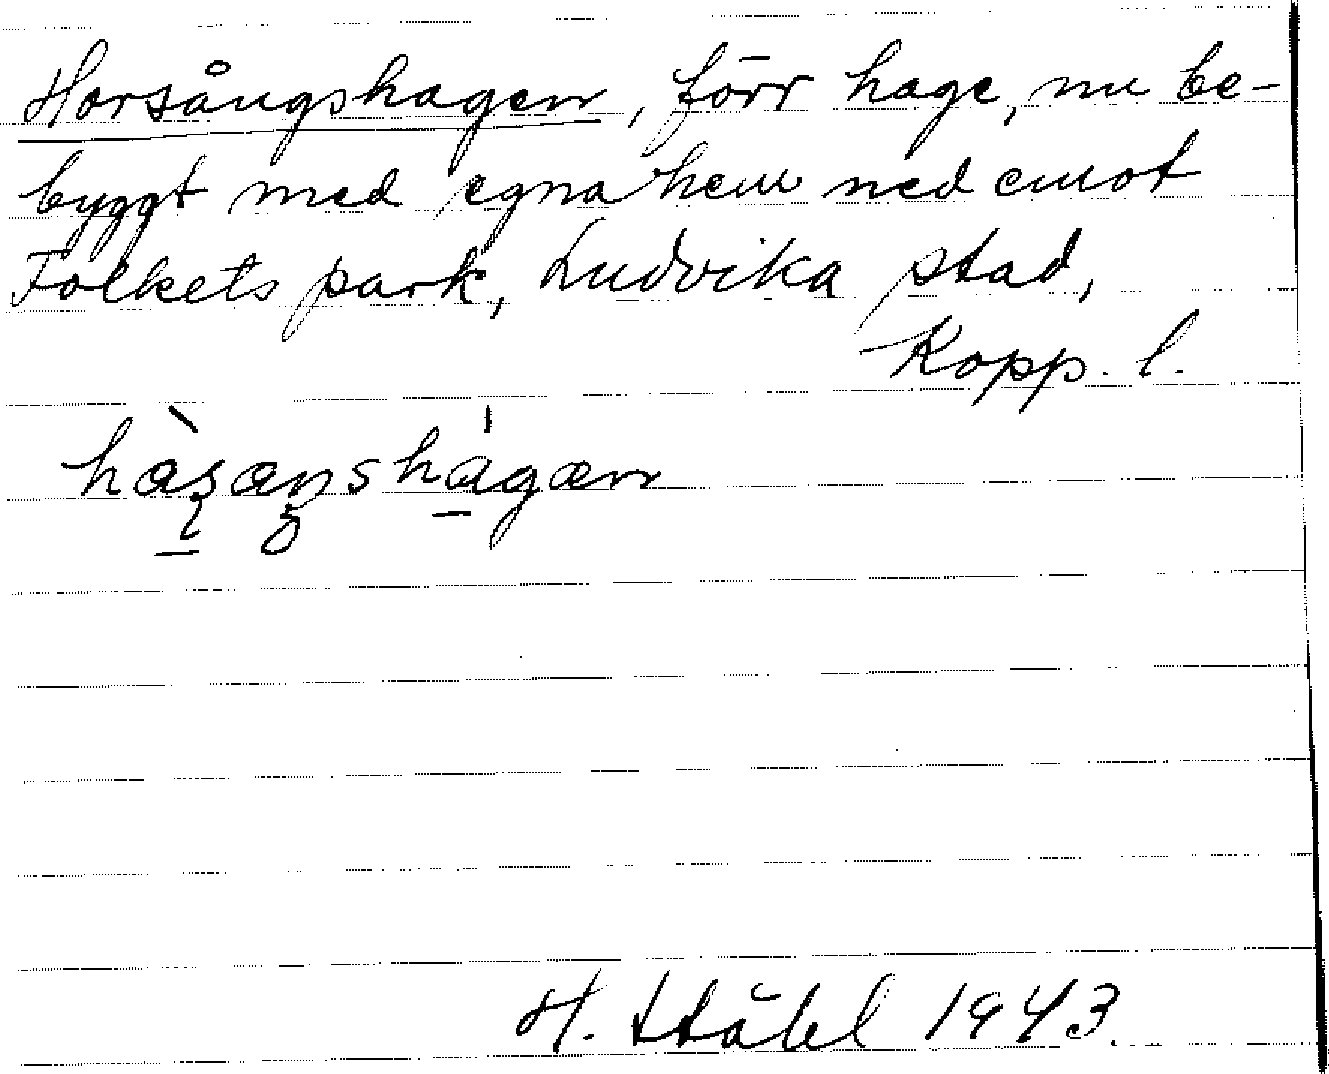 Horsångshagen, förr hage, nu be-
byggt med egna hem ned emot
Folkets park, Ludvika stad,
Kopp. l.
H. Ståhl 1943.